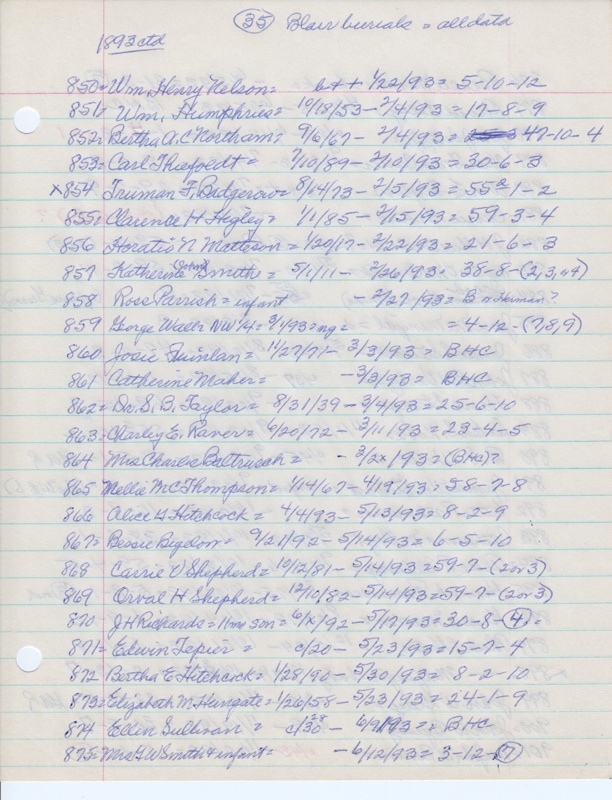 35 Blair burials = all data
1893 ctd
850 = Wm. Henry Nelson = b + + 1/22/93 = 5-10-12
851 = Wm. Humphries = 10/18/53 - 2/4/93 = 17-8-9
852 = Bertha A.C. Northam = 9/6/67 - 2/4/93 = 47-10-4
853 = Carl Thiefoedt = 7/10/89 - 2/10/93 = 30-6-3
x854 Truman F. Badgerow = 8/14/73 - 2/5/93 = 55-1-2
855 = Clarence H. Hegley = 1/1/85 - 2/15/93 = 59-3-4
856 Horatio N. Matteson = 1/20/17 - 2/22/93 = 21-6-3
857 Katherine (John) Smith = 5/1/11 - 2/26/93 = 38-8-(2,3, or 4)
858 Rose Parrish = infant - 2/27/93 = B or Herman?
859 George Waltz NW 1/4 = 3/1/93 = ng = = 4-12-(7,8,9)
860 Josie Quinlan = 11/27/71 - 3/3/93 = BHC
861 Catherine Maher = - 3/3/93 = BHC
862 = Dr. S. B. Taylor = 8/31/39 - 3/4/93 = 25-6-10
863 = Charley E. Raver = 6/20/72 - 3/11/93 = 23-4-5
864 Mrs Charlie = - 3/2x/93 = (BHC)?
865 Mellie McC Thompson = 1/14/67 - 4/19/93 = 58-7-8
866 Alice G Hitchcock = 4/4/93 - 5/13/93 = 8-2-9
867 = Bessie Bigelow = 9/21/92 - 5/14/93 = 6-5-10
868 Carrie V Shepherd = 10/12/81 - 5/14/93 = 59-7-(2 or 3)
869 Orval H Shepherd = 12/10/82 - 5/14/93 = 59-7-(2 or 3)
870 J H Richards = 11 mo son = 6/x/92 - 5/17/93 = 30-8-4 =
871 = Edwin Tepier = c/20 - 5/23/93 = 15-7-4
872 Bertha E. Hitchcock = 1/28/90 - 5/30/93 = 8-2-10
873 = Elizabeth M. Hungate = 1/26/58 - 5/23/93 = 24-1-9
874 Ellen Sullivan = c/30 28 - 6/9/93 = BHC
875 = Mrs G W Smith & infant = - 6/12/93 = 3-12-7